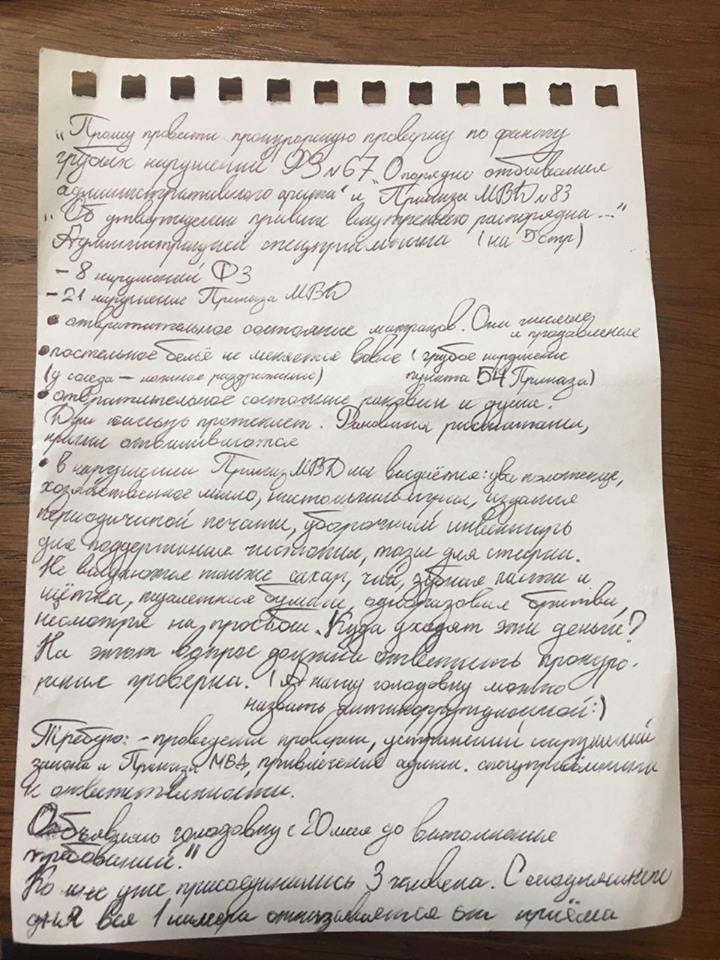 „Прошу провести прокурорскую проверку по факту
грубых нарушений ФЗ №67 „О порядке отбывания
административного ареста" и „Приказа МВД №83
„Об утверждении правил внутреннего распорядка..."
Администрацией спецприёмника (на 5 стр)
- 8 нарушений ФЗ
- 21 нарушение Приказа МВД
• отвратительное состояние матрацов. Они гнилые
и продавленные
• постельное бельё не меняется вовсе (грубое нарушение
(у соседа – кожное раздражение) пункта 54 Приказа)
• отвратительное состояние раковин и душа.
Душ постоянно протекает. Раковина
краны отваливаются
• в нарушении Приказ МВД не выдаётся: два полотенце,
хозяйственное мыло, настольные игры, издания
периодической печати, уборочный инвентарь
для поддержания чистоты, тазы для стирки.
Не выдаются также сахар, чай, зубная паста и
щётка, туалетная бумага, одноразовая бритва,
несмотря на просьбы. Куда уходят эти деньги?
На этот вопрос должна ответить прокуро-
рская проверка. (А нашу голодовку можно
назвать антикоррупционной:)
Требую: - проведения проверки, устранений нарушений
закона и Приказа МВД, привлечение админ. спецприёмника
к ответственности.
Объявляю голодовку с 20 мая до выполнения
требований."
Ко мне уже присоединились 3 человека. С сегодняшнего
дня вся 1 камера отказывается от приёма